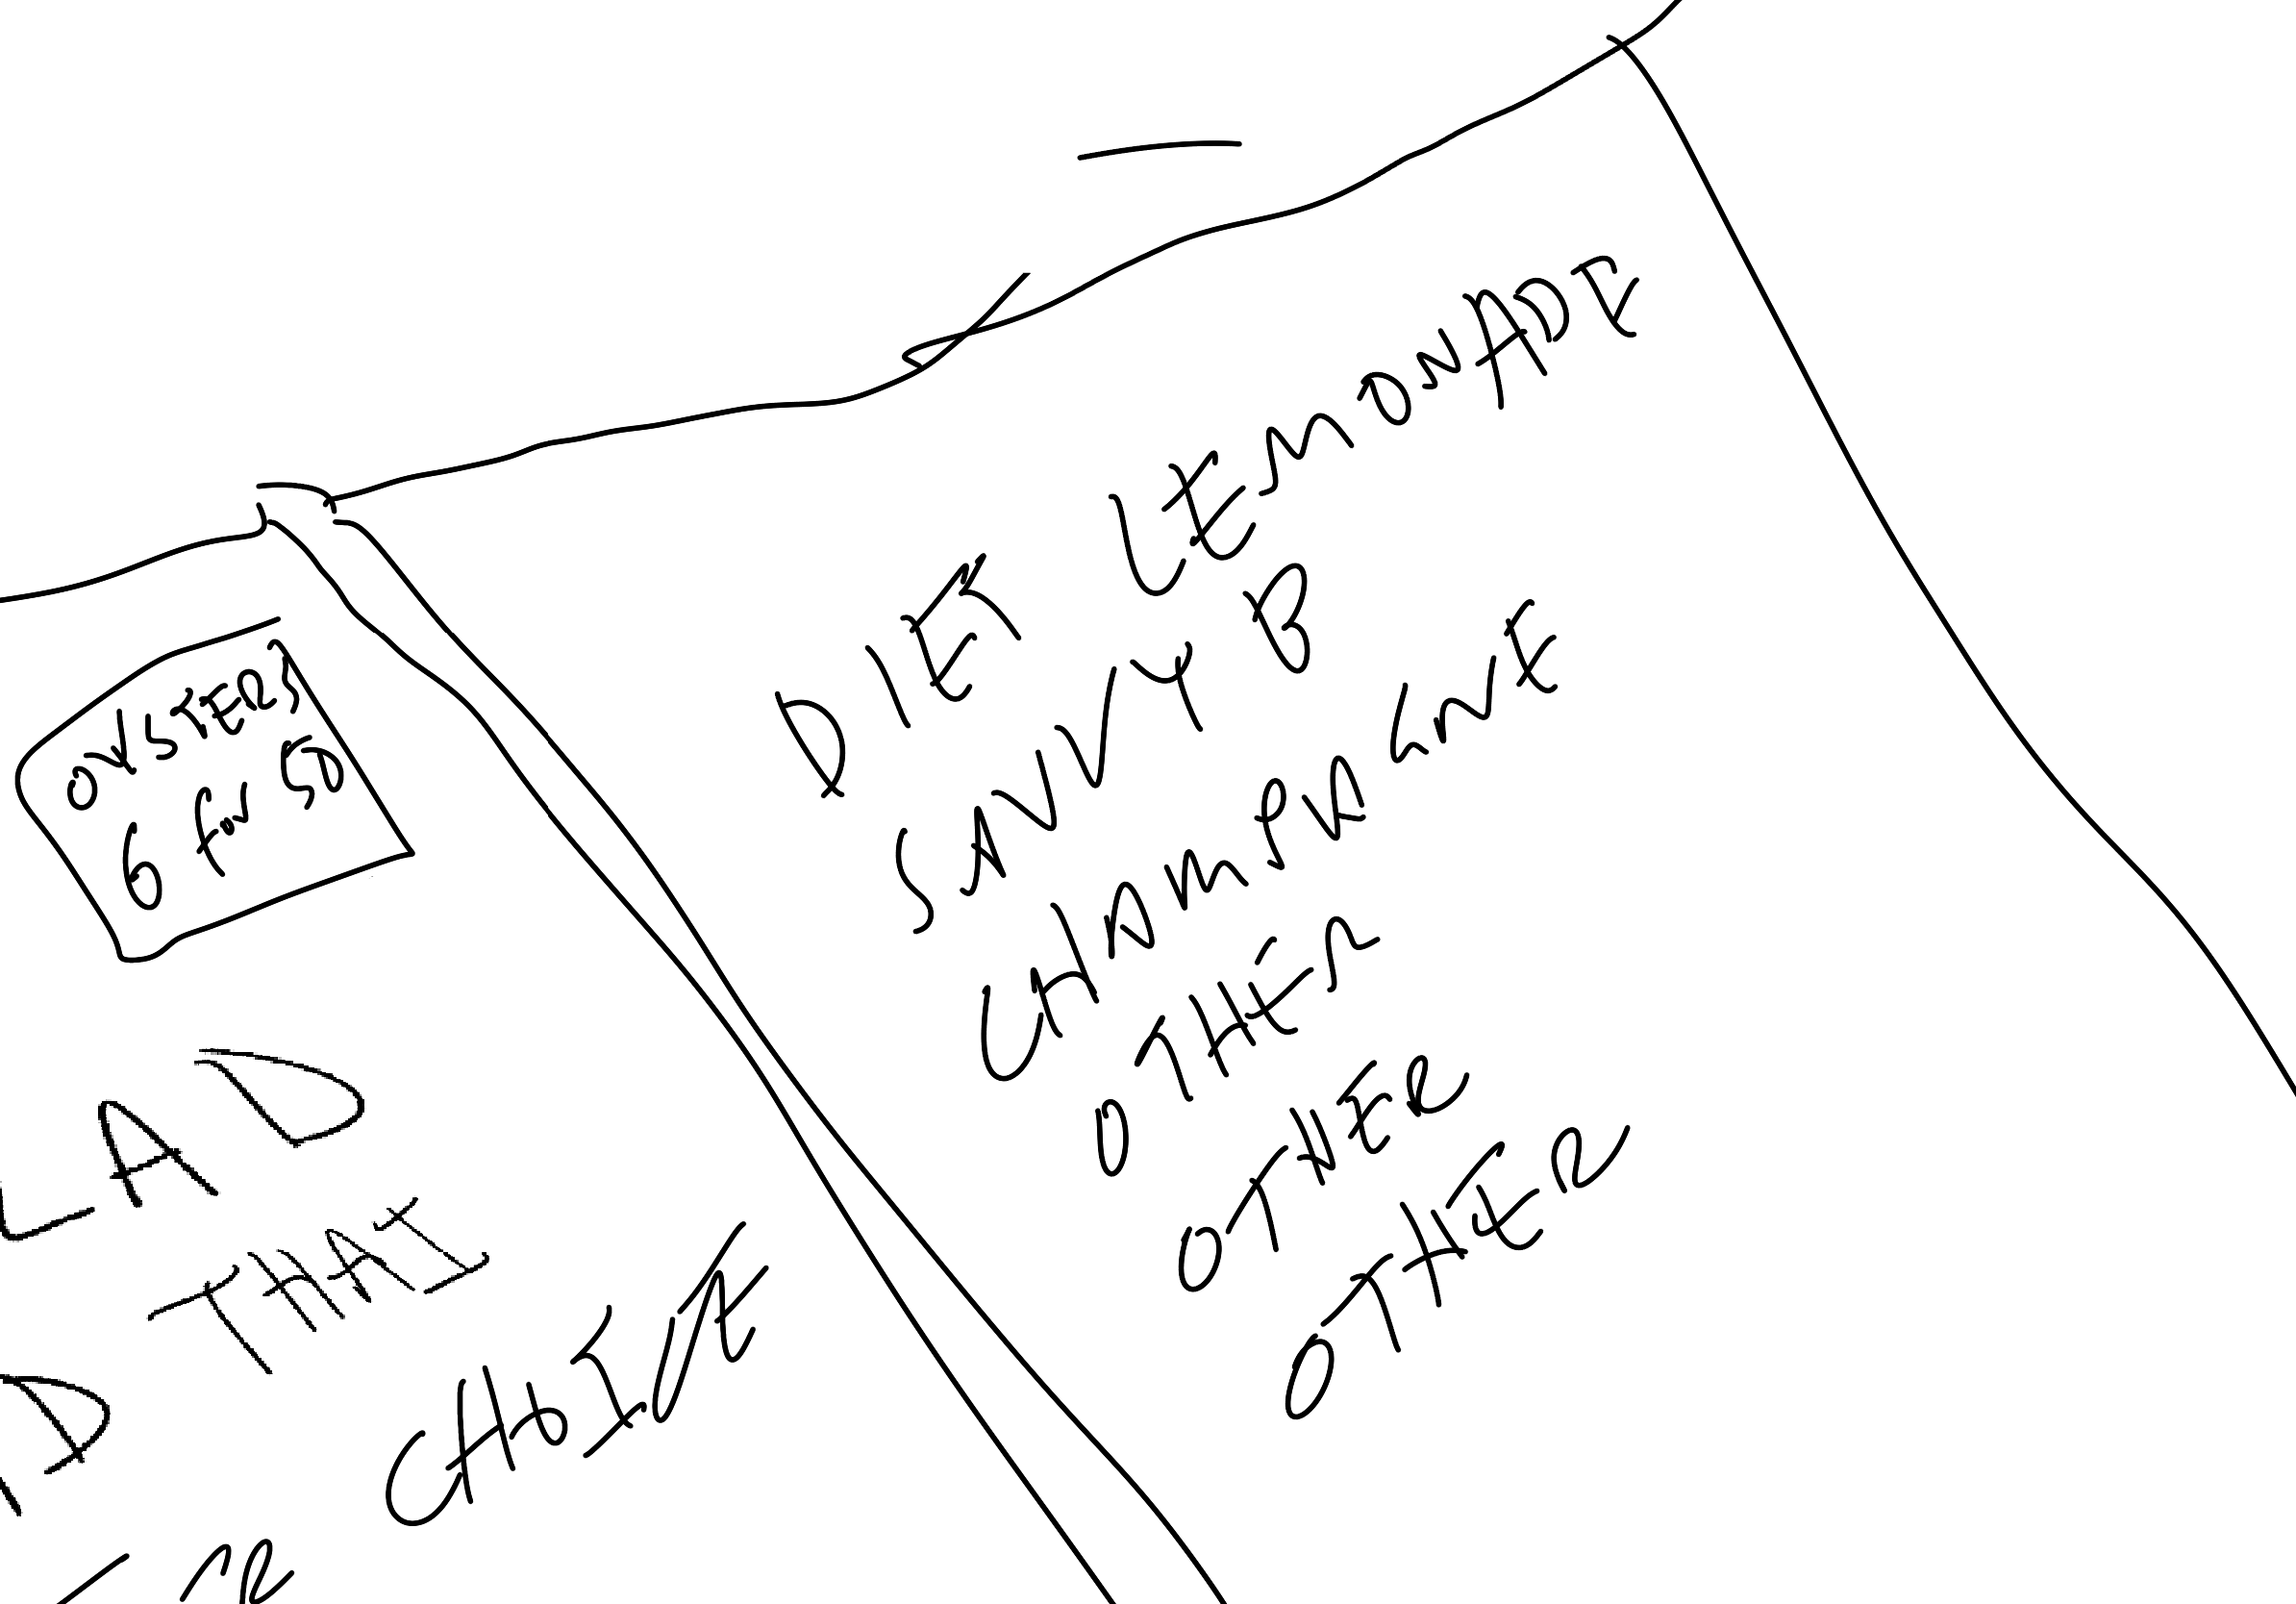 OYSTERS
6 for 50
LAD
THAT
CHOICE
DIET LEMONADE
SAUVY B
CHAMPAGNE
OTHER
OTHER
OTHER